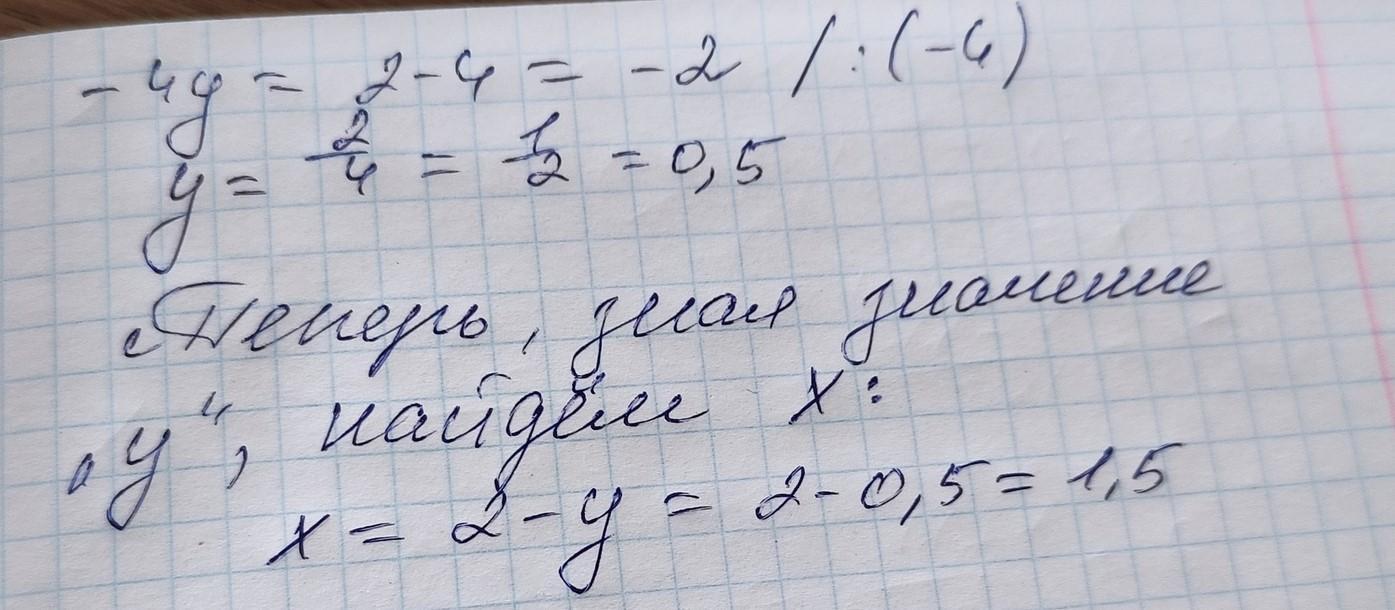 -4y = 2-4 = -2 / :(-4)
y = 2/4 = 1/2 = 0,5
Теперь, зная значение
„y“, найдём x:
x = 2-y = 2-0,5 = 1,5